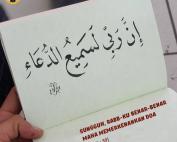 إِنَّ رَبِّي لَسَمِيعُ الدُّعَاءِ
SUNGGUH, RABB-KU BENAR-BENAR
MAHA MEMPERKENANKAN DOA